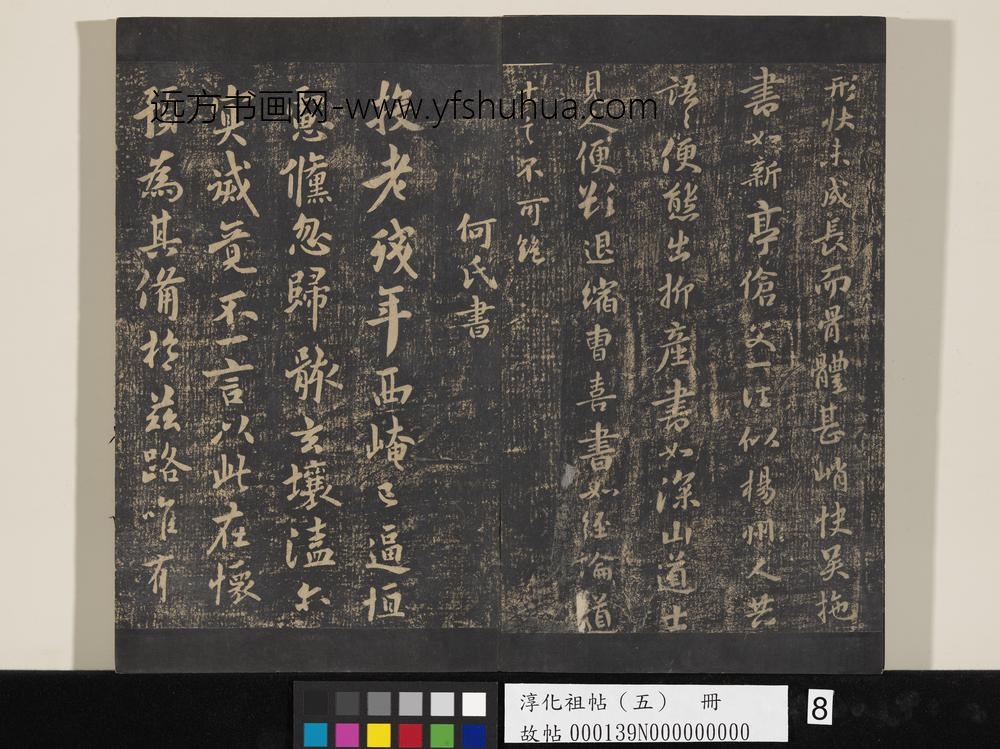 形狀未成長而骨體甚峭快吴施
書如新亭傖父一往似楊州人共
語語便態出抑產書如深山道士
見人便欲退缩曹喜書如經論道
人言不可絶
何氏書
投老殘年西崦已逼恒
恐儵忽歸骸玄壤溘尒
真誠竟不一言以此在懷
預為其備於兹路唯有
远方书画网-www.yfshuhua.com
淳化祖帖（五） 冊
故帖 000139N000000000
8